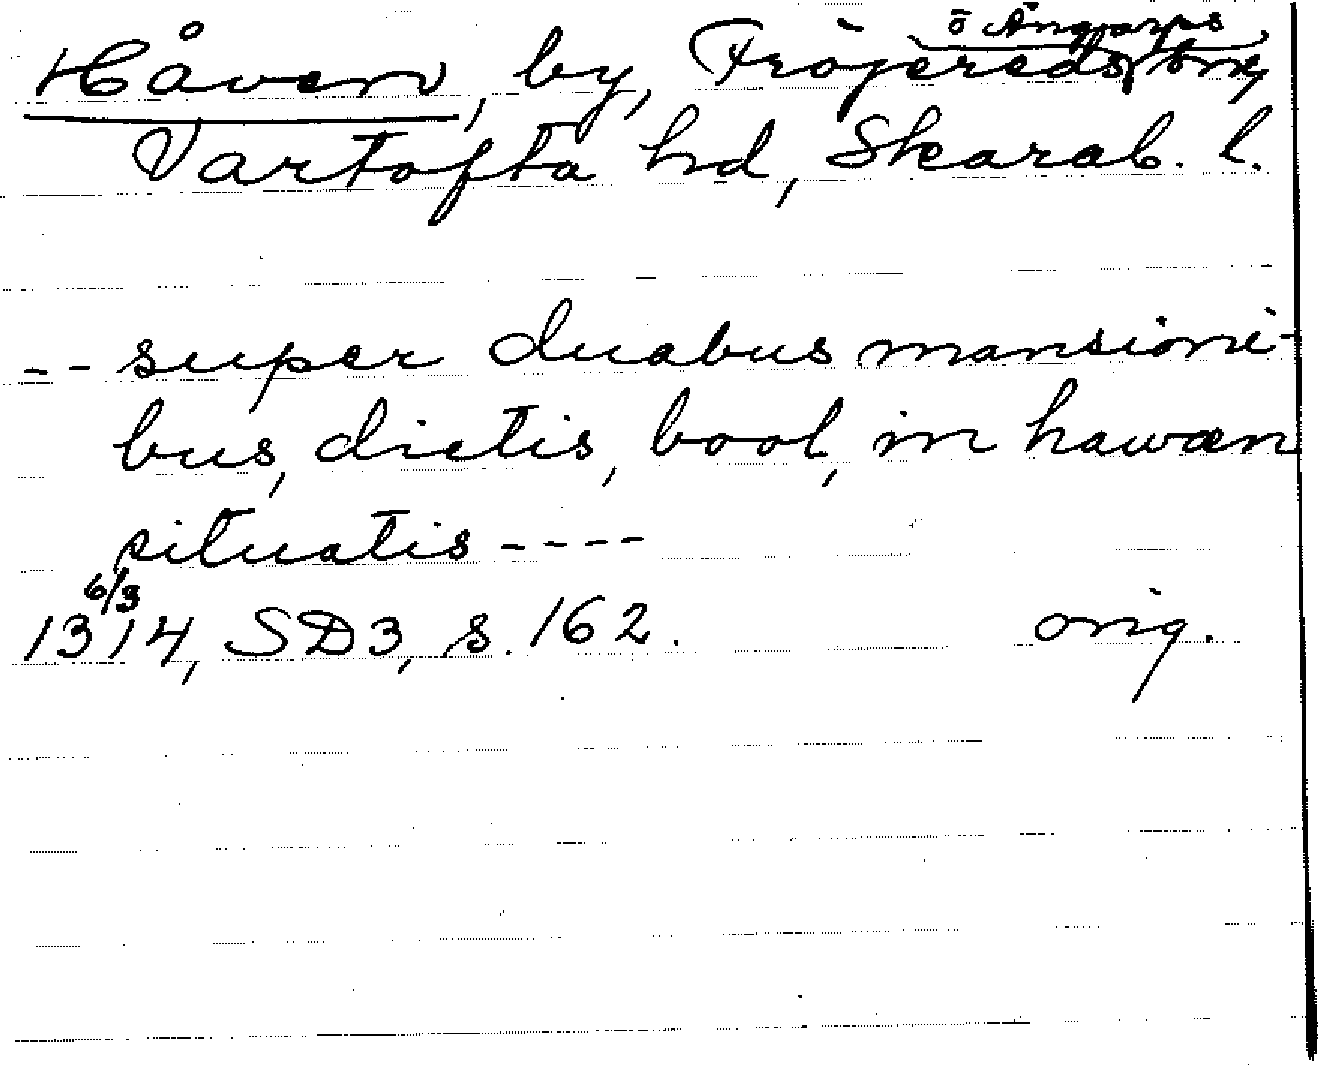 ō Ängarps
Håven, by, Fröjereds snr,
Vartofta hd, Skarab. l.
-- super duabus mansioni-
bus, dictis, bool, in hawæn
situatis ----
6/3
1314, SD3, s. 162. orig.